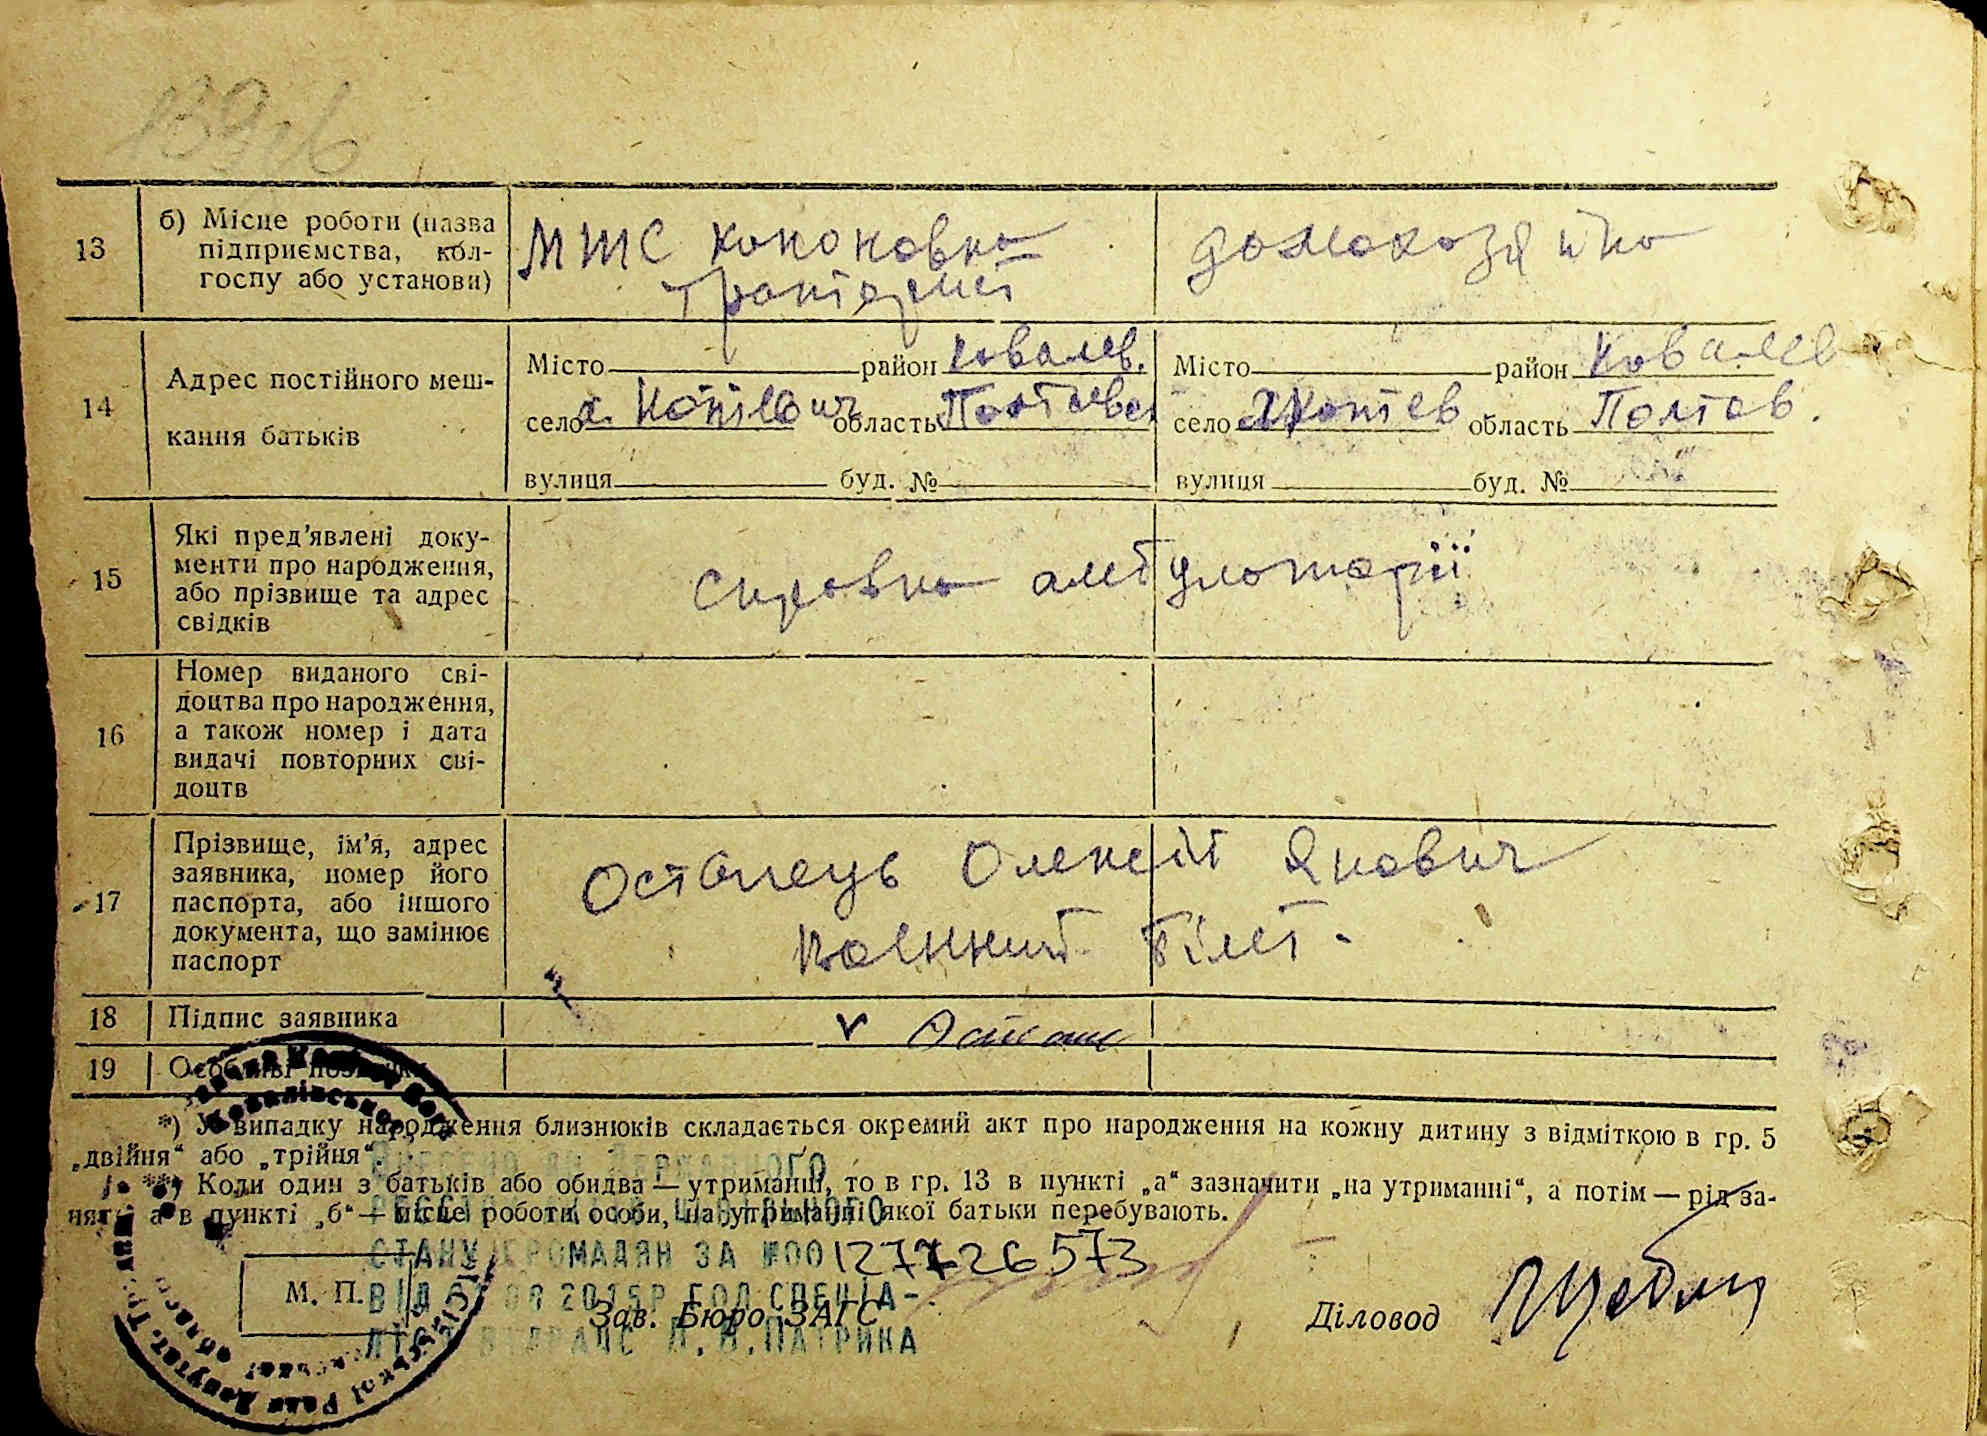 13
б) Місце роботи (назва
підприємства, кол-
госпу або установи)
МТС Кононовка
домохозяйка
14
Адрес постійного меш-
кання батьків
Місто район Ковалев.
село х. область Полтавск
вулиця буд. №
Місто район Ковалев
село область Полтав.
вулиця буд. №
15
Які пред'явлені доку-
менти про народження,
або прізвище та адрес
свідків
справка амбулаторії
16
Номер виданого сві-
доцтва про народження,
а також номер і дата
видачі повторних сві-
доцтв
17
Прізвище, ім'я, адрес
заявника, номер його
паспорта, або іншого
документа, що замінює
паспорт
Остапець Олексій Якович
воєнний білет.
18 Підпис заявника
19 Особливі позначки
*) У випадку народження близнюків складається окремий акт про народження на кожну дитину з відміткою в гр. 5
„двійня“ або „трійня“.
**) Коли один з батьків або обидва — утриманці, то в гр. 13 в пункті „а“ зазначити „на утриманні“, а потім — рід за-
няття а в пункті „б“ — місце роботи особи, на утриманні якої батьки перебувають.
ВНЕСЕНО ДО ДЕРЖАВНОГО
РЕЄСТРУ АКТІВ ЦИВІЛЬНОГО
СТАНУ ГРОМАДЯН ЗА №00127726573
2015Р ГОЛ.СПЕЦІА-
ЛІСТ ВДРАЦС П.В.ПАТРИКА
М. П.
Зав. Бюро ЗАГС
Діловод